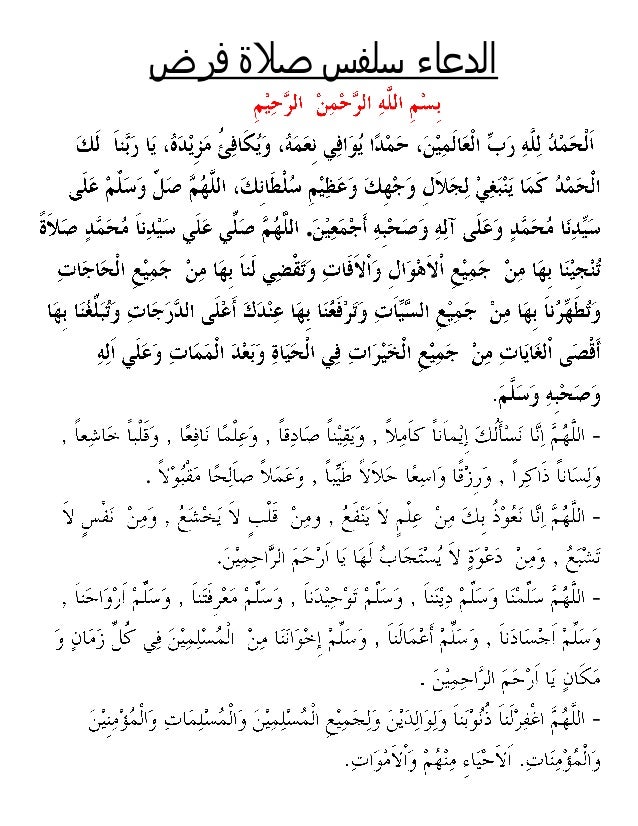 الدعاء سلفس صلاة فرض
بِسْمِ اللَّهِ الرَّحْمِنْ الرَّحِيْمِ
اَلْحَمْدُ لِلَّهِ رَبِّ الْعَالَمِيْنَ، حَمْدًا يُوَافِي نِعَمَهُ، وَيُكَافِئُ مَزِيْدَهُ، يَا رَبَّنَا لَكَ
الْحَمْدُ كَمَا يَنْبَغِيْ لِجَلاَلِ وَجْهِكَ وَعَظِيْمِ سُلْطَانِكَ، اللَّهُمَّ صَلّ وَسَلِّمْ عَلَى
سَيِّدِنَا مُحَمَّدٍ وَعَلَى آلِهِ وَصَحْبِهِ أَجْمَعِيْنَ. اللَّهُمَّ صَلِّي عَلَي سَيْدِنَا مُحَمَّدٍ صَلاَةً
تُنْجِيْنَا بِهَا مِنْ جَمِيْعِ اْلأَهْوَالِ وَاْلآفَاتِ وَتَقْضِي لَنَا بِهَا مِنْ جَمِيْعِ الْحَاجَاتِ
وَتُطَهِّرُنَا بِهَا مِنْ جَمِيْعِ السَّيِّآتِ وَتَرْفَعُنَا بِهَا عِنْدَكَ أَعْلَى الدَّرَجَاتِ وَتُبَلِّغُنَا بِهَا
أَقْصَى اْلغَايَاتِ مِنْ جَمِيْعِ الْخَيْرَاتِ فِي الْحَيَاةِ وَبَعْدَ الْمَمَاتِ وَعَلَي اَلِهِ
وَصَحْبِهِ وَسَلَّمَ.
- اللَّهُمَّ اِنَّا نَسْأَلُكَ اِيْمَانًا كَامِلاً , وَيَقِيْناً صَادِقاً , وَعِلْمًا نَافِعًا , وَقَلْباً خَاشِعاً ,
وَلِسَاناً ذَاكِراً , وَرِزْقًا وَاسِعًا حَلاَلاً طَيِّباً , وَعَمَلاً صاَلِحًا مَقْبُوْلاً .
- اللَّهُمَّ اِنَّا نَعُوْذُ بِكَ مِنْ عِلْمٍ لاَ يَنْفَعُ , ومِنْ قَلْبٍ لاَ يَخْشَعُ , وَمِنْ نَفْسٍ لاَ
تَشْبَعُ , وَمِنْ دَعْوَةٍ لاَ يُسْتَجَابُ لَهَا يَا اَرْحَمَ الرَّاحِمِيْنَ.
- اللَّهُمَّ سَلِّمْنَا وَسَلِّمْ دِيْنَنَا , وَسَلِّمْ تَوْحِيْدَنَا , وَسَلِّمْ مَعْرِفَتَنَا , وَسَلِّمْ اَرْوَاحَنَا ,
وَسَلِّمْ اَجْسَادَنَا , وَسَلِّمْ أَعْمَالَنَا , وَسَلِّمْ إِخْوَانَنَا مِنْ الْمُسْلِمِيْنَ فِي كُلِّ زَمَانٍ وَ
مَكَانٍ يَا اَرْحَمَ الرَّاحِمِيْنَ .
- اللَّهُمَّ اغْفِرْلَنَا ذُنُوْبَنَا وَلِوَالِدَيْنَ وَلِجَمِيْعِ الْمُسْلِمِيْنَ وَالْمُسْلِمَاتِ وَالْمُؤْمِنِيْنَ
وَالْمُؤْمِنَاتِ. اَلاَحْيَاءِ مِنْهُمْ وَاْلاَمْوَاتِ.